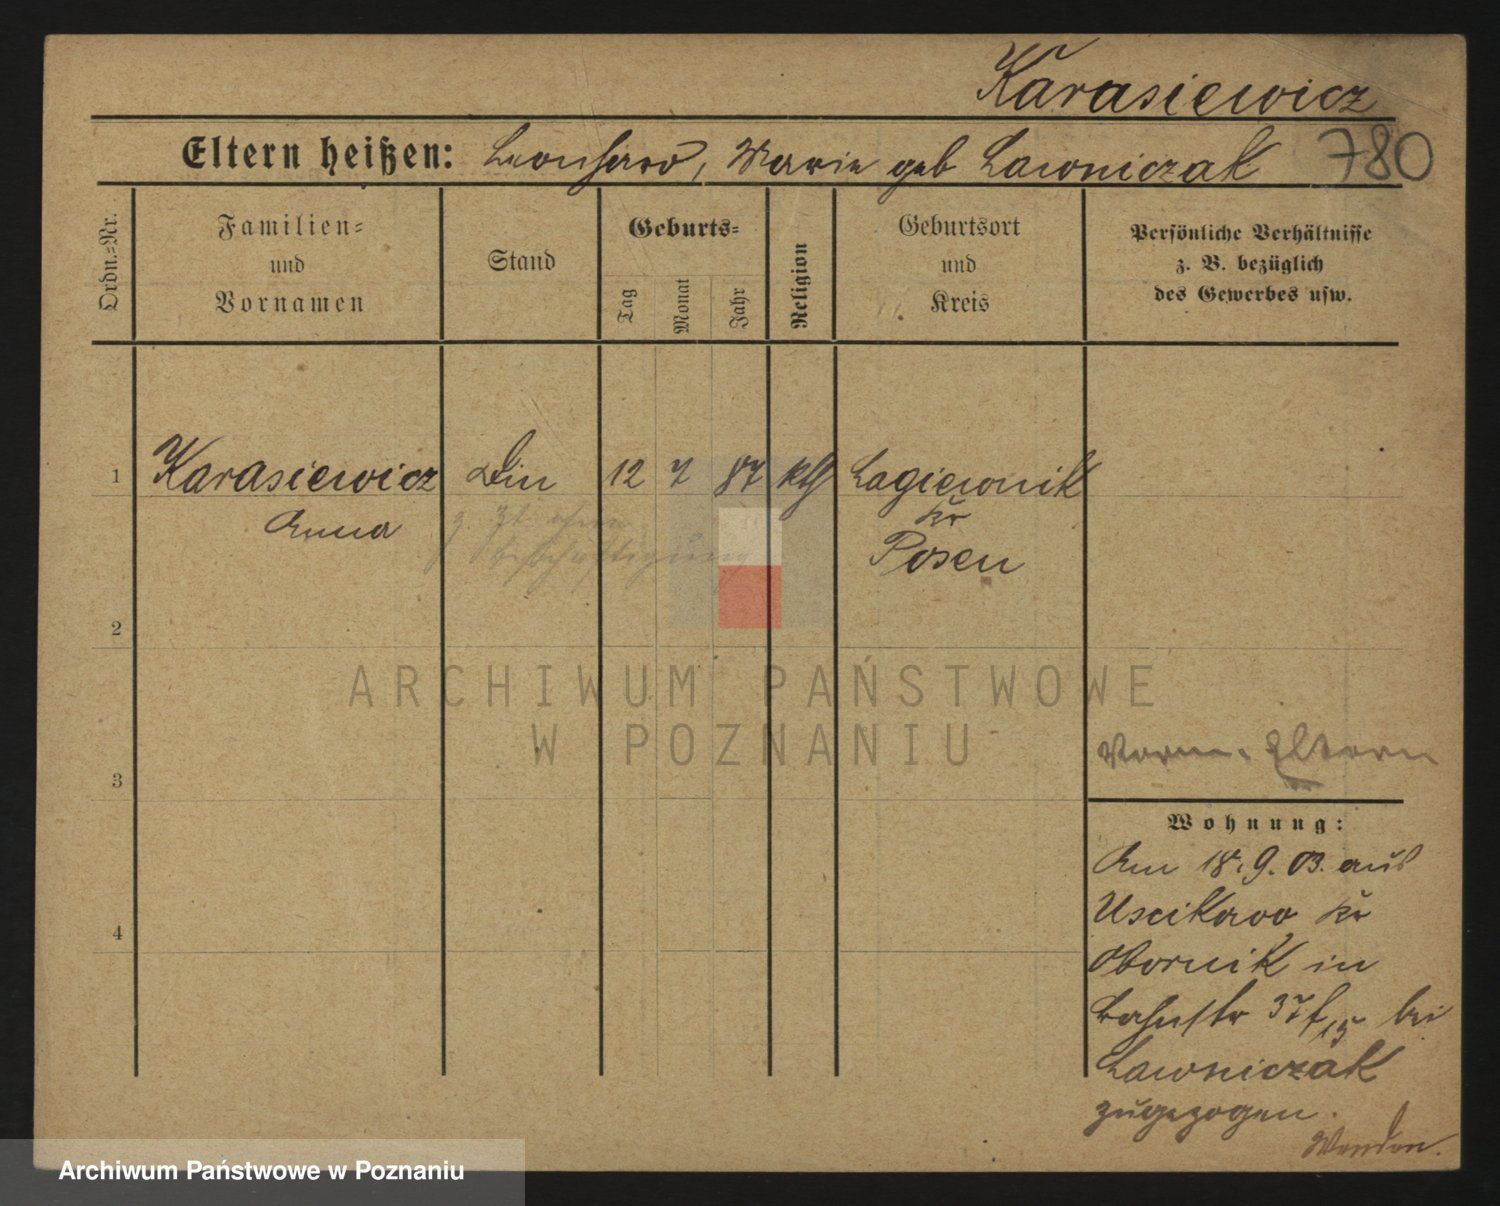 Karasiewicz
Eltern heißen: Leonhard, Marie geb Lawniczak 780
Ordn.=Nr.
Familien=
und
Vornamen
Stand
Geburts=
Tag
Monat
Jahr
Religion
Geburtsort
und
Kreis
Persönliche Verhältnisse
z. B. bezüglich
des Gewerbes usw.
1 Karasiewicz Din 12 7 87 kth Lagiewnik
Anna
z. Zt ohne
Beschäftigung
Kr
Posen
2
3
4
Vorm. Eltern
Wohnung:
Am 18. 9. 03. aus
Uscikowo Kr
Obornik in
Bahnstr 37 f, 15 bei
Lawniczak
zugezogen.
Wenden.
ARCHIWUM PAŃSTWOWE
W POZNANIU
Archiwum Państwowe w Poznaniu